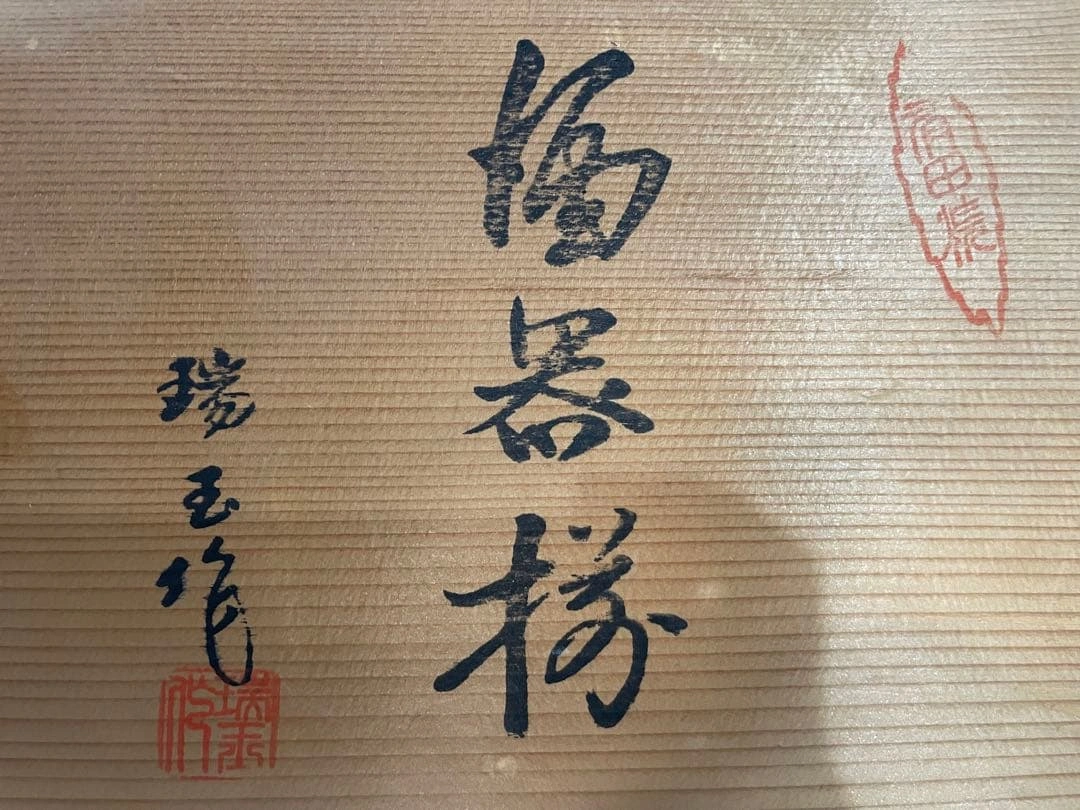 有田焼
酒器揃
瑞玉作